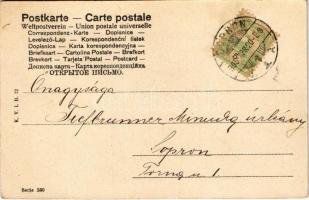 Postkarte - Carte postale
Weltpostverein - Union postale universelle
Correspondenz-Karte - Dopisnice -
Levelező-Lap - Korespondenční lístek
Dopisnica - Karta korespondencyjna -
Briefkaart - Cartolina Postale - Brefkort
Brevkort - Tarjeta Postal - Postcard -
Дописна карта - Карта кореспонденційна
ОТКРЫТОЕ ПИСЬМО.
SOPRON
K. V. i. B. 22
Őnagysága
Tiefbrunner úrhölgy
Sopron
Torna u 1
Serie 580